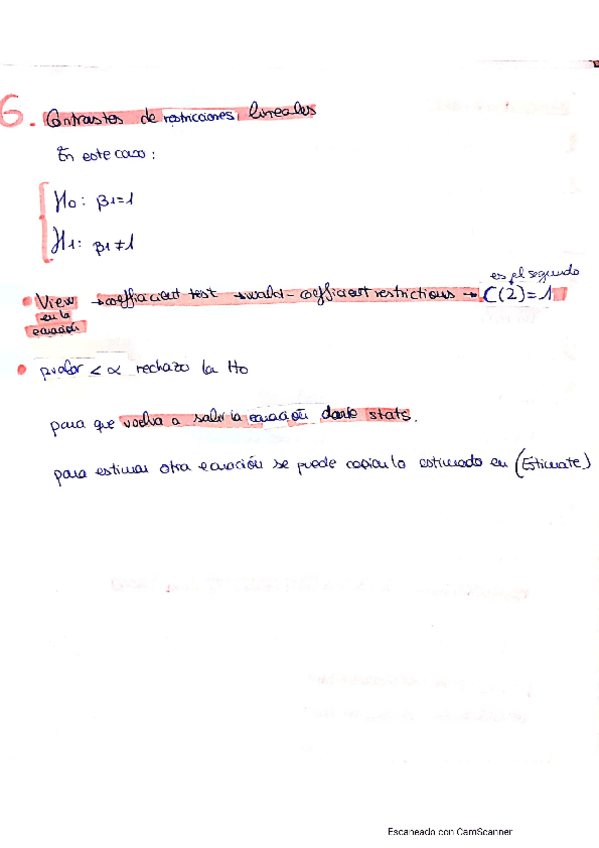 6. Contrastes de restricciones lineales
En este caso:
H0: β1=1
H1: β1≠1
es el segundo
• View → coefficient test → wald - coefficient restrictions → C(2)=1
en la
ecuación
• pvalor < α rechazo la H0
para que vuelva a salir la ecuación darle stats.
para estimar otra ecuación se puede copiar lo estimado en (Estimate)
Escaneado con CamScanner